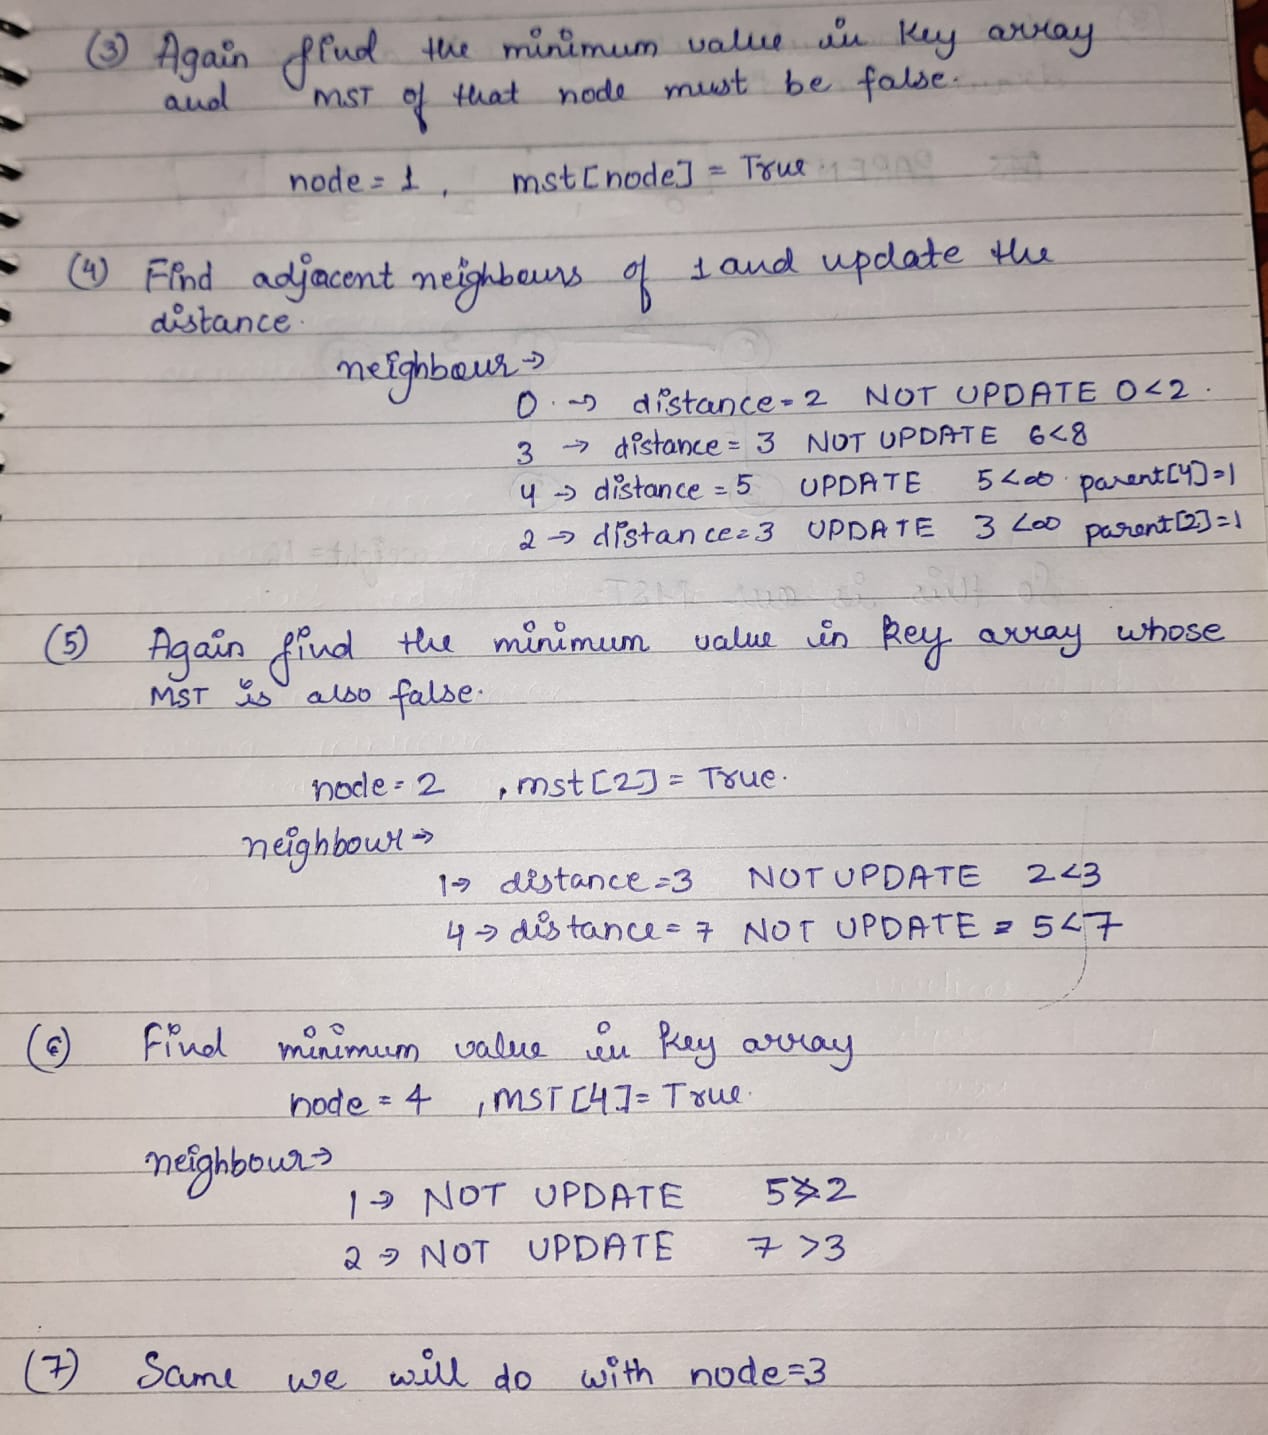 (3) Again find the minimum value in key array
and MST of that node must be false.
node = 1, mst[node] = True
(4) Find adjacent neighbours of 1 and update the
distance.
neighbour →
0 → distance = 2 NOT UPDATE 0<2.
3 → distance = 3 NOT UPDATE 6<8
4 → distance = 5 UPDATE 5<∞ parent[4]=1
2 → distance = 3 UPDATE 3<∞ parent[2]=1
(5) Again find the minimum value in key array whose
MST is also false.
node = 2, mst[2] = True.
neighbour →
1 → distance = 3 NOT UPDATE 2<3
4 → distance = 7 NOT UPDATE = 5<7
(6) Find minimum value in key array
node = 4, MST[4] = True.
neighbour →
1 → NOT UPDATE 5>2
2 → NOT UPDATE 7>3
(7) Same we will do with node=3